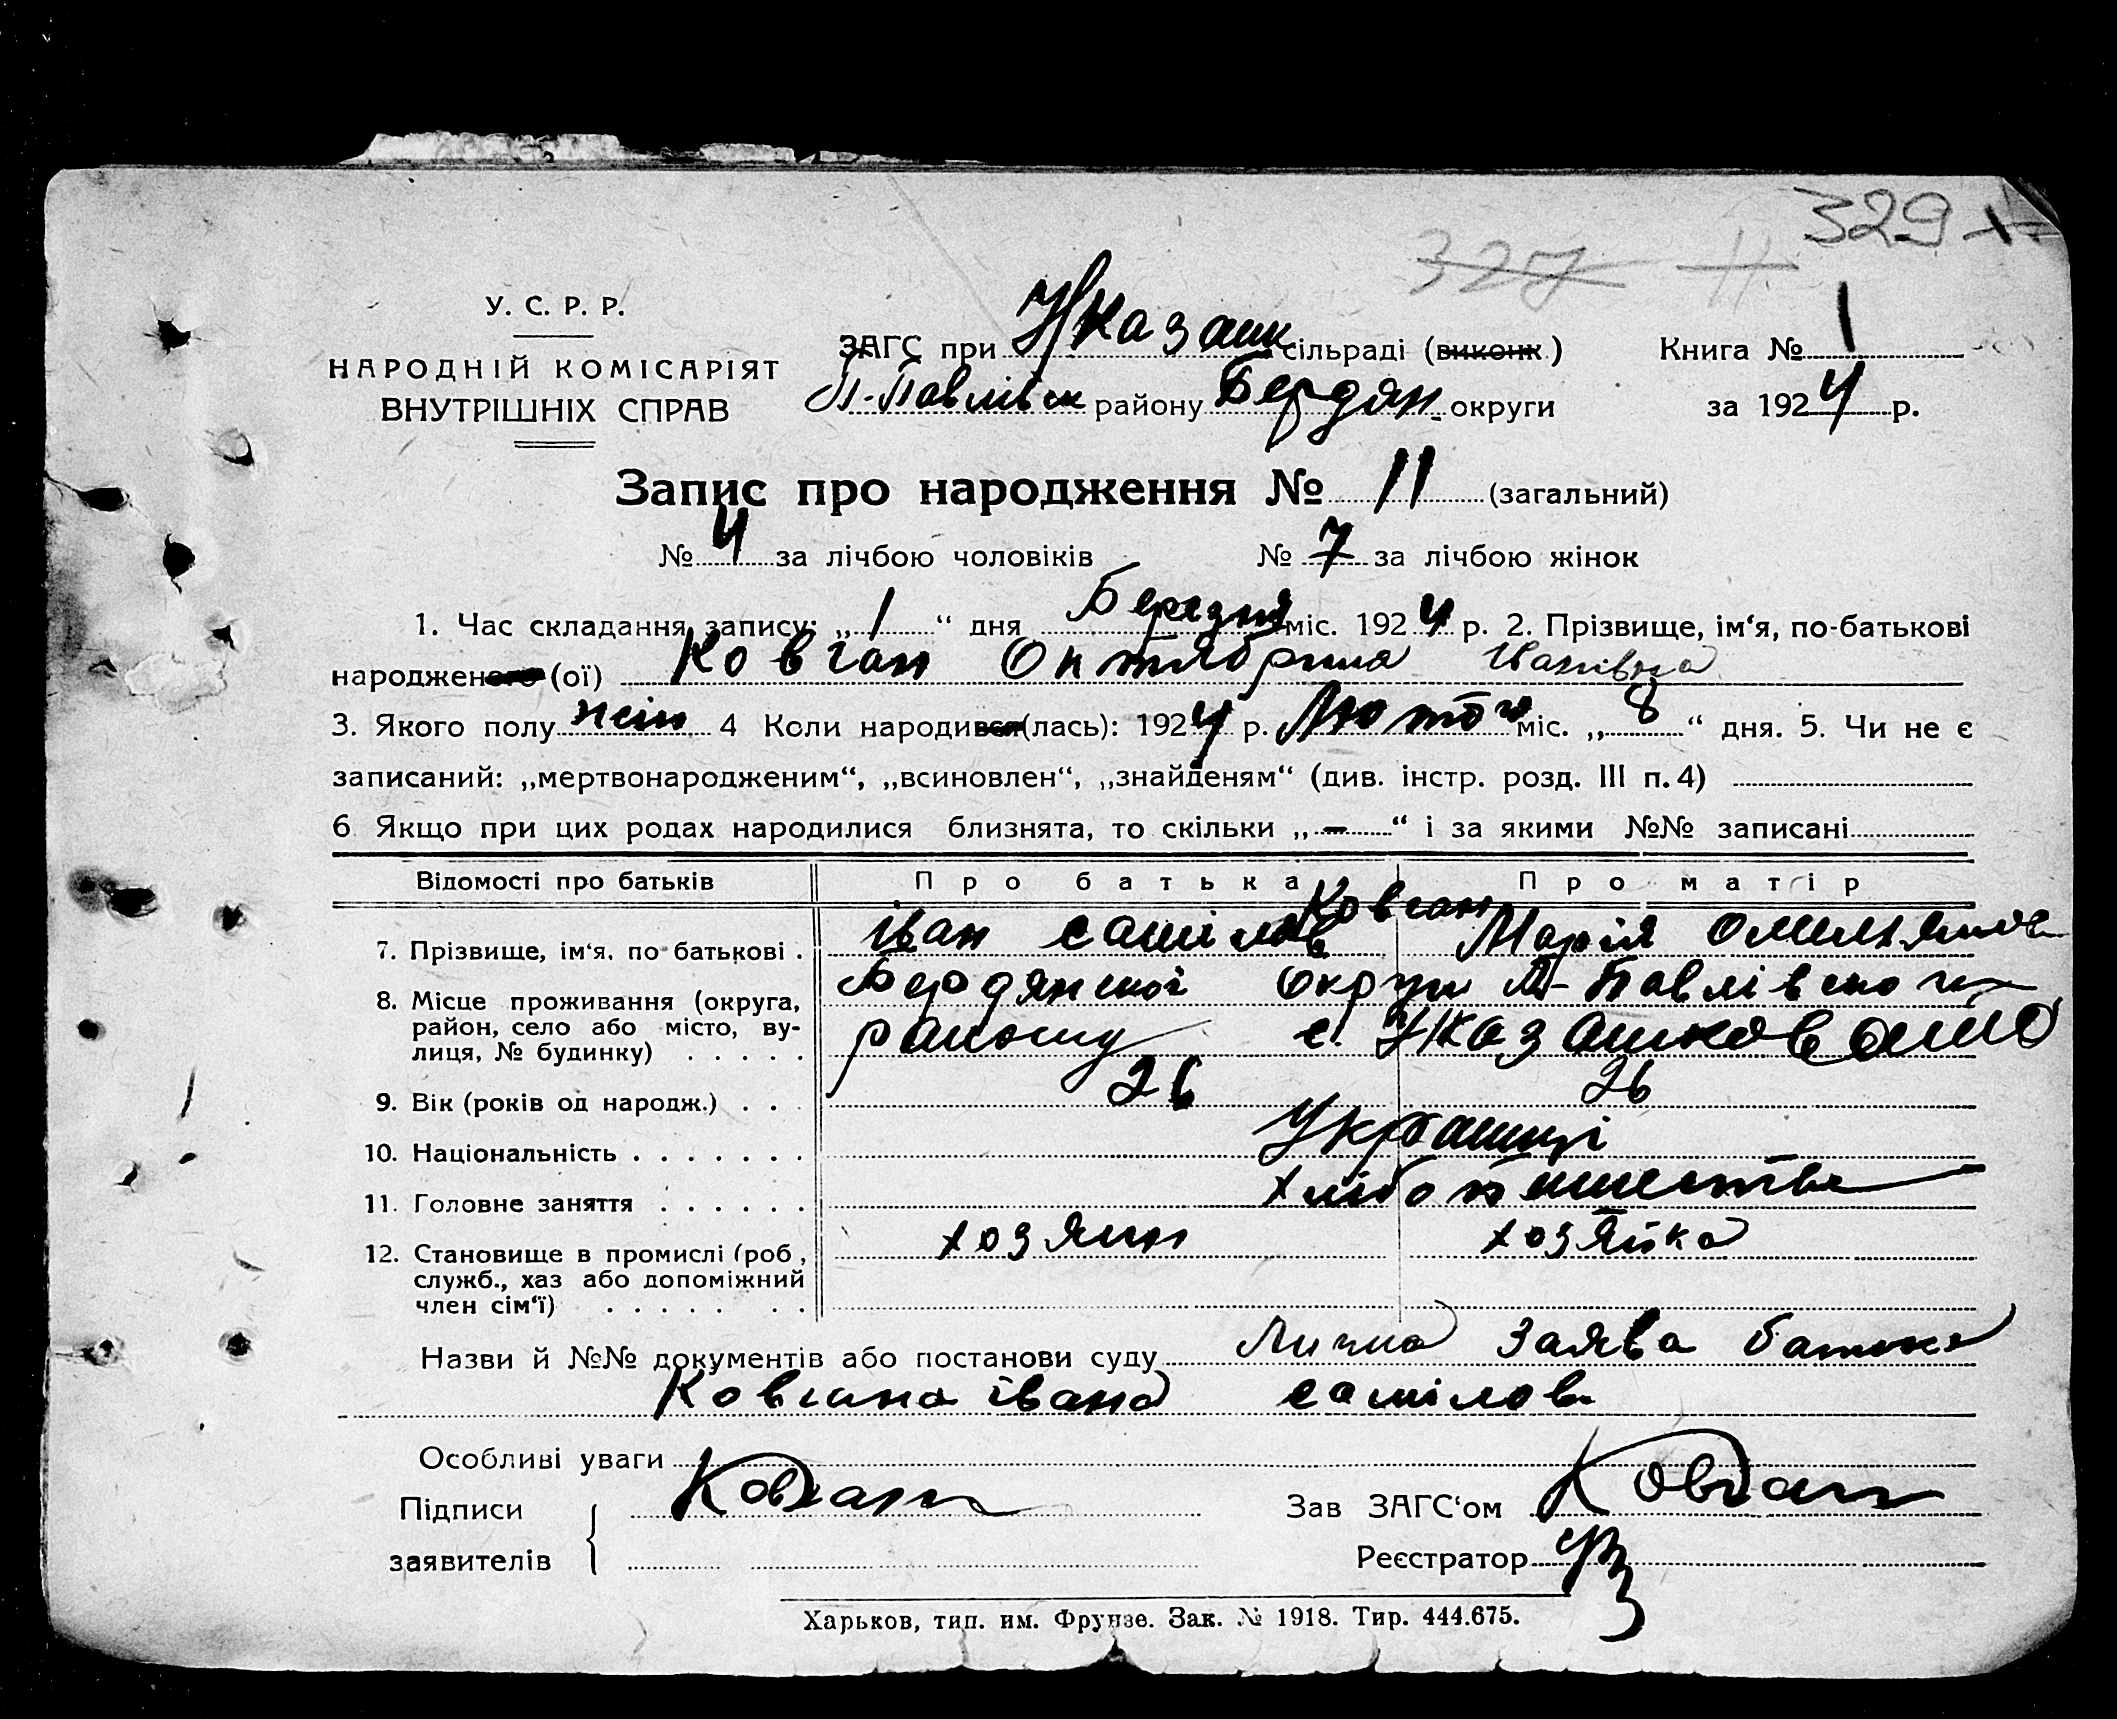 329
327 11
У. С. Р. Р.
НАРОДНІЙ КОМІСАРІЯТ
ВНУТРІШНІХ СПРАВ
ЗАГС при сільраді (виконк.)
Книга № 1
П-Павлівск району Бердян. округи
за 1924 р.
Запис про народження № 11 (загальний)
№ 4 за лічбою чоловіків № 7 за лічбою жінок
1. Час складання запису: „ 1 “ дня Березня міс. 1924 р. 2. Прізвище, ім‘я, по-батькові
народженого (ої) Ковган Октябрина Іванівна
3. Якого полу жін 4 Коли народився(лась): 1924 р. Лютого міс. „ 8 “ дня. 5. Чи не є
записаний: „мертвонародженим“, „всиновлен“, „знайденям“ (див. інстр. розд. III п. 4)
6 Якщо при цих родах народилися близнята, то скільки „ – “ і за якими №№ записані
Відомості про батьків Про батька Про матір
Ковган
7. Прізвище, ім‘я, по-батькові . Іван Самілов Марія Омельянов
8. Місце проживання (округа, Бердянскої Округи П-Павлівского
район, село або місто, ву- району с.
лиця, № будинку) . . . . .
9. Вік (років од народж.) . . . 26 26
10. Національність . . . . . . . Українці
11. Головне заняття . . . . . . хлібопашество
12. Становище в промислі (роб., хозяин хозяйка
служб., хаз або допоміжний
член сім‘ї) . . . . . . .
Назви й №№ документів або постанови суду Лична заява батька
Ковгана Івана Самілов
Особливі уваги
Підписи Ковган Зав ЗАГС‘ом Ковган
заявителів Реєстратор
Харьков, тип. им. Фрунзе. Зак. № 1918. Тир. 444.675.